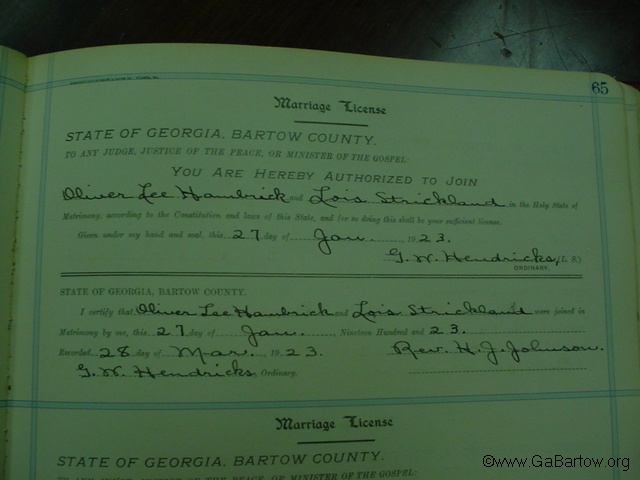 65
Marriage License
STATE OF GEORGIA, BARTOW COUNTY.
TO ANY JUDGE, JUSTICE OF THE PEACE, OR MINISTER OF THE GOSPEL:
YOU ARE HEREBY AUTHORIZED TO JOIN
Oliver Lee Hambrick and Lois Strickland in the Holy State of
Matrimony, according to the Constitution and laws of this State, and for so doing this shall be your sufficient license.
Given under my hand and seal, this 27 day of Jan. 1923.
G. W. Hendricks, (L. S.)
ORDINARY.
STATE OF GEORGIA, BARTOW COUNTY.
I certify that Oliver Lee Hambrick and Lois Strickland were joined in
Matrimony by me, this 27 day of Jan. Nineteen Hundred and 23.
Recorded 28 day of Mar. 1923. Rev. H. J. Johnson.
G. W. Hendricks, Ordinary.
Marriage License
STATE OF GEORGIA, BARTOW COUNTY.
TO ANY JUDGE, JUSTICE OF THE PEACE, OR MINISTER OF THE GOSPEL:
©www.GaBartow.org